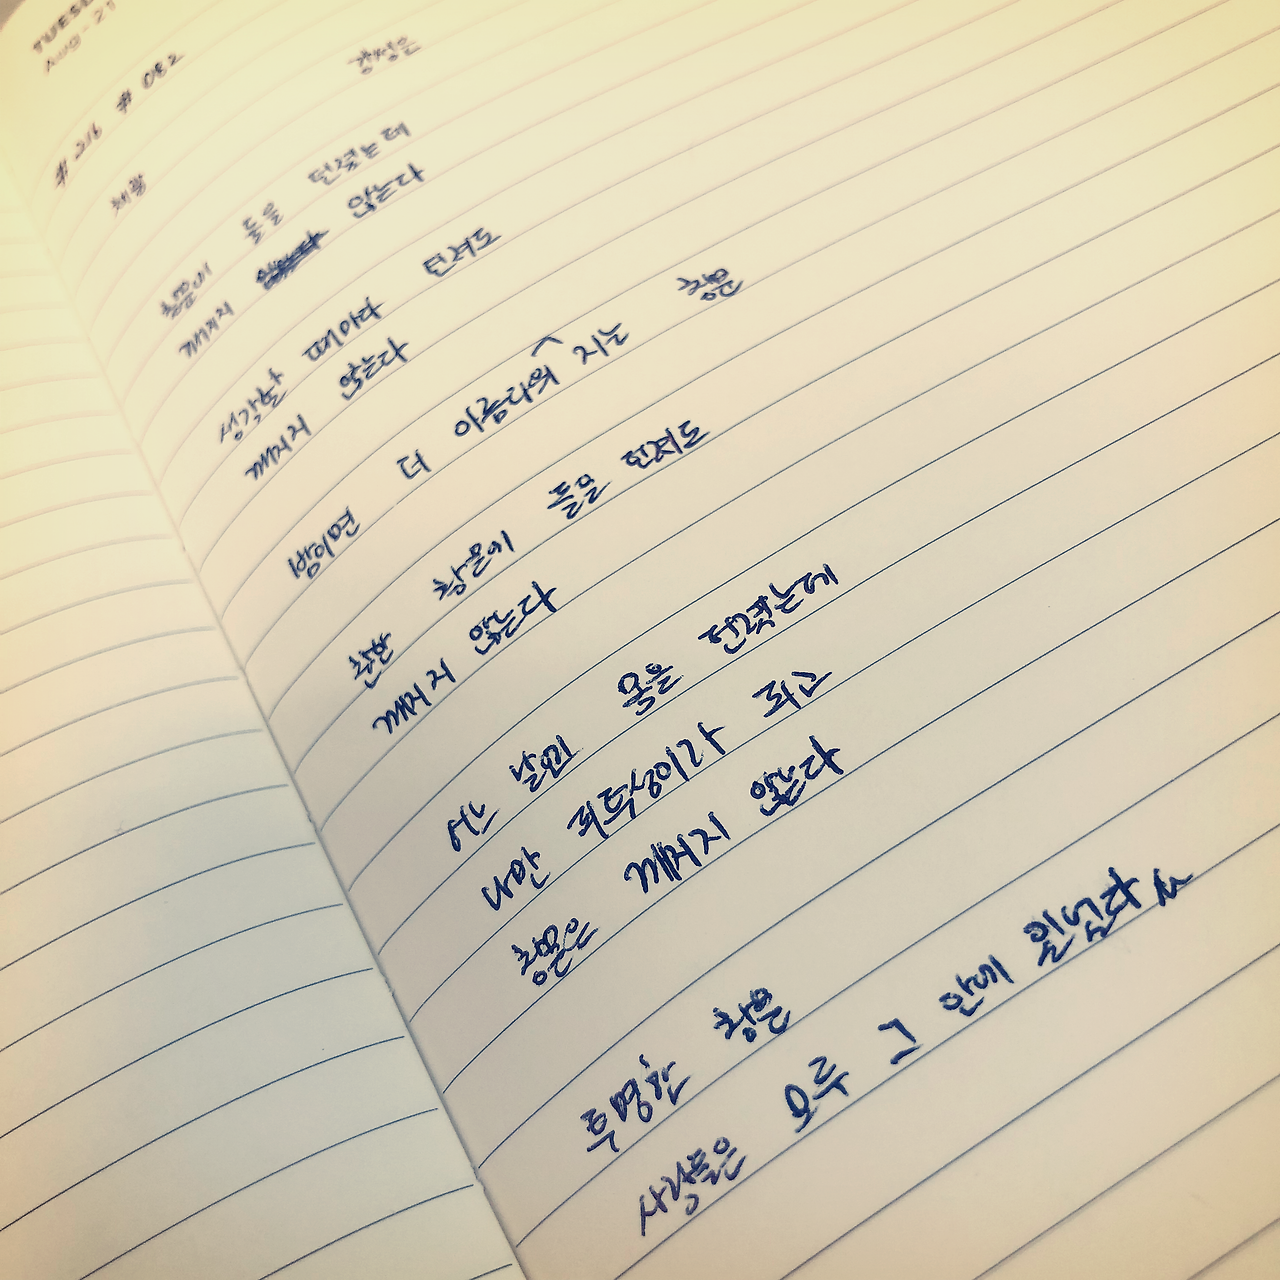 TUESD
Aug - 21
# 216 # 082
채광 강성은
창문에 돌을 던졌는데
깨지지 않는다
생각날 때마다 던져도
깨지지 않는다
밤이면 더 아름다워 지는 창문
환한 창문에 돌을 던져도
깨지지 않는다
어느 날엔 몸을 던졌는데
나만 피투성이가 되고
창문은 깨지지 않는다
투명한 창문
사람들은 모두 그 안에